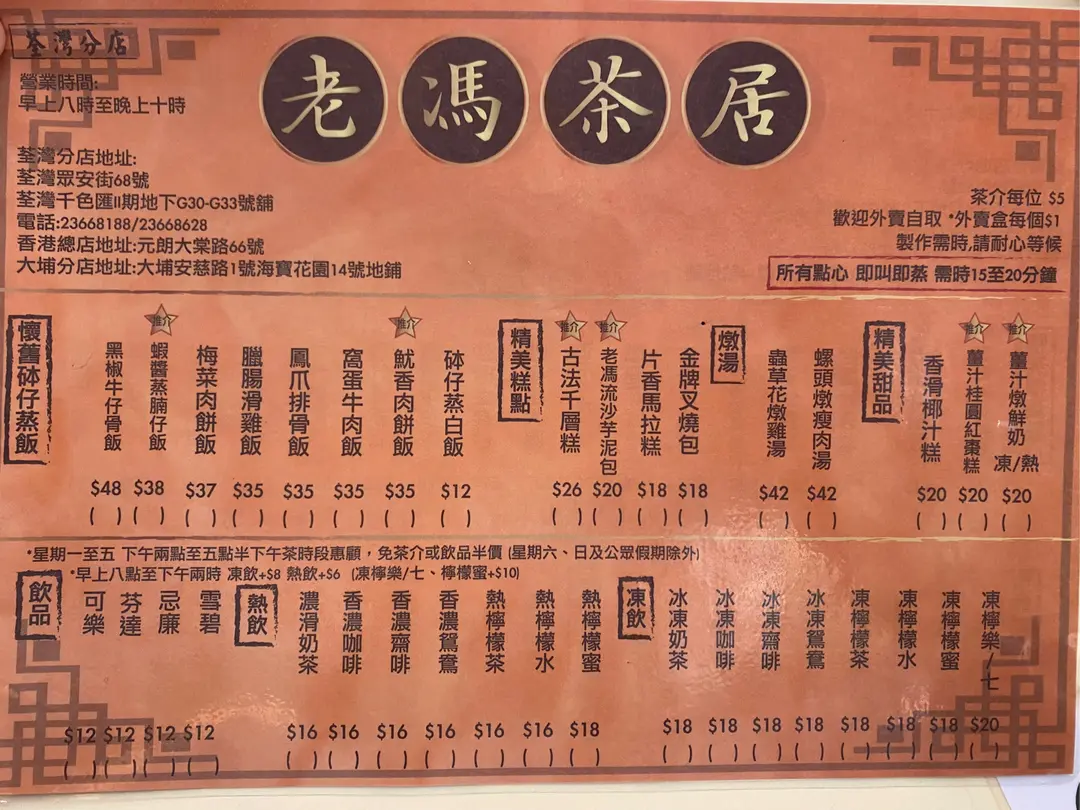 荃灣分店
老馮茶居
營業時間:
早上八時至晚上十時
荃灣分店地址:
荃灣眾安街68號
荃灣千色匯II期地下G30-G33號舖
電話:23668188/23668628
香港總店地址:元朗大棠路66號
大埔分店地址:大埔安慈路1號海寶花園14號地舖
茶介每位 $5
歡迎外賣自取 *外賣盒每個$1
製作需時,請耐心等候
所有點心 即叫即蒸 需時15至20分鐘
懷舊砵仔蒸飯
黑椒牛仔骨飯 $48 ( )
推介 蝦醬蒸腩仔飯 $38 ( )
梅菜肉餅飯 $37 ( )
臘腸滑雞飯 $35 ( )
鳳爪排骨飯 $35 ( )
窩蛋牛肉飯 $35 ( )
推介 魷香肉餅飯 $35 ( )
砵仔蒸白飯 $12 ( )
精美糕點
推介 古法千層糕 $26 ( )
推介 老馮流沙芋泥包 $20 ( )
片香馬拉糕 $18 ( )
金牌叉燒包 $18 ( )
燉湯
蟲草花燉雞湯 $42 ( )
螺頭燉瘦肉湯 $42 ( )
精美甜品
香滑椰汁糕 $20 ( )
推介 薑汁桂圓紅棗糕 $20 ( )
推介 薑汁燉鮮奶 凍/熱 $20 ( )
*星期一至五 下午兩點至五點半下午茶時段惠顧，免茶介或飲品半價 (星期六、日及公眾假期除外)
*早上八點至下午兩時 凍飲+$8 熱飲+$6 (凍檸樂/七、檸檬蜜+$10)
飲品
可樂 $12 ( )
芬達 $12 ( )
忌廉 $12 ( )
雪碧 $12 ( )
熱飲
濃滑奶茶 $16 ( )
香濃咖啡 $16 ( )
香濃齋啡 $16 ( )
香濃鴛鴦 $16 ( )
熱檸檬茶 $16 ( )
熱檸檬水 $16 ( )
熱檸檬蜜 $18 ( )
凍飲
冰凍奶茶 $18 ( )
冰凍咖啡 $18 ( )
冰凍齋啡 $18 ( )
冰凍鴛鴦 $18 ( )
凍檸檬茶 $18 ( )
凍檸檬水 $18 ( )
凍檸檬蜜 $18 ( )
凍檸樂/七 $20 ( )